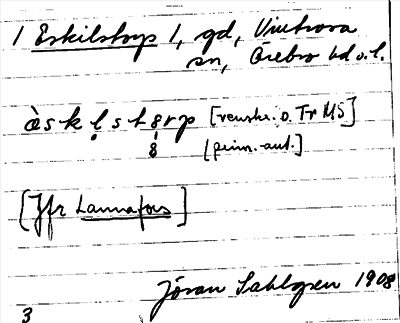 1 Eskilstorp 1, gd, Vintrosa
sn, Örebro hd o. l.
àskḷstȣrp [renskr. o. Tr MS]
ȣ [prim.-aut.]
[Jfr Lannafors]
Jöran Sahlgren 1908
3